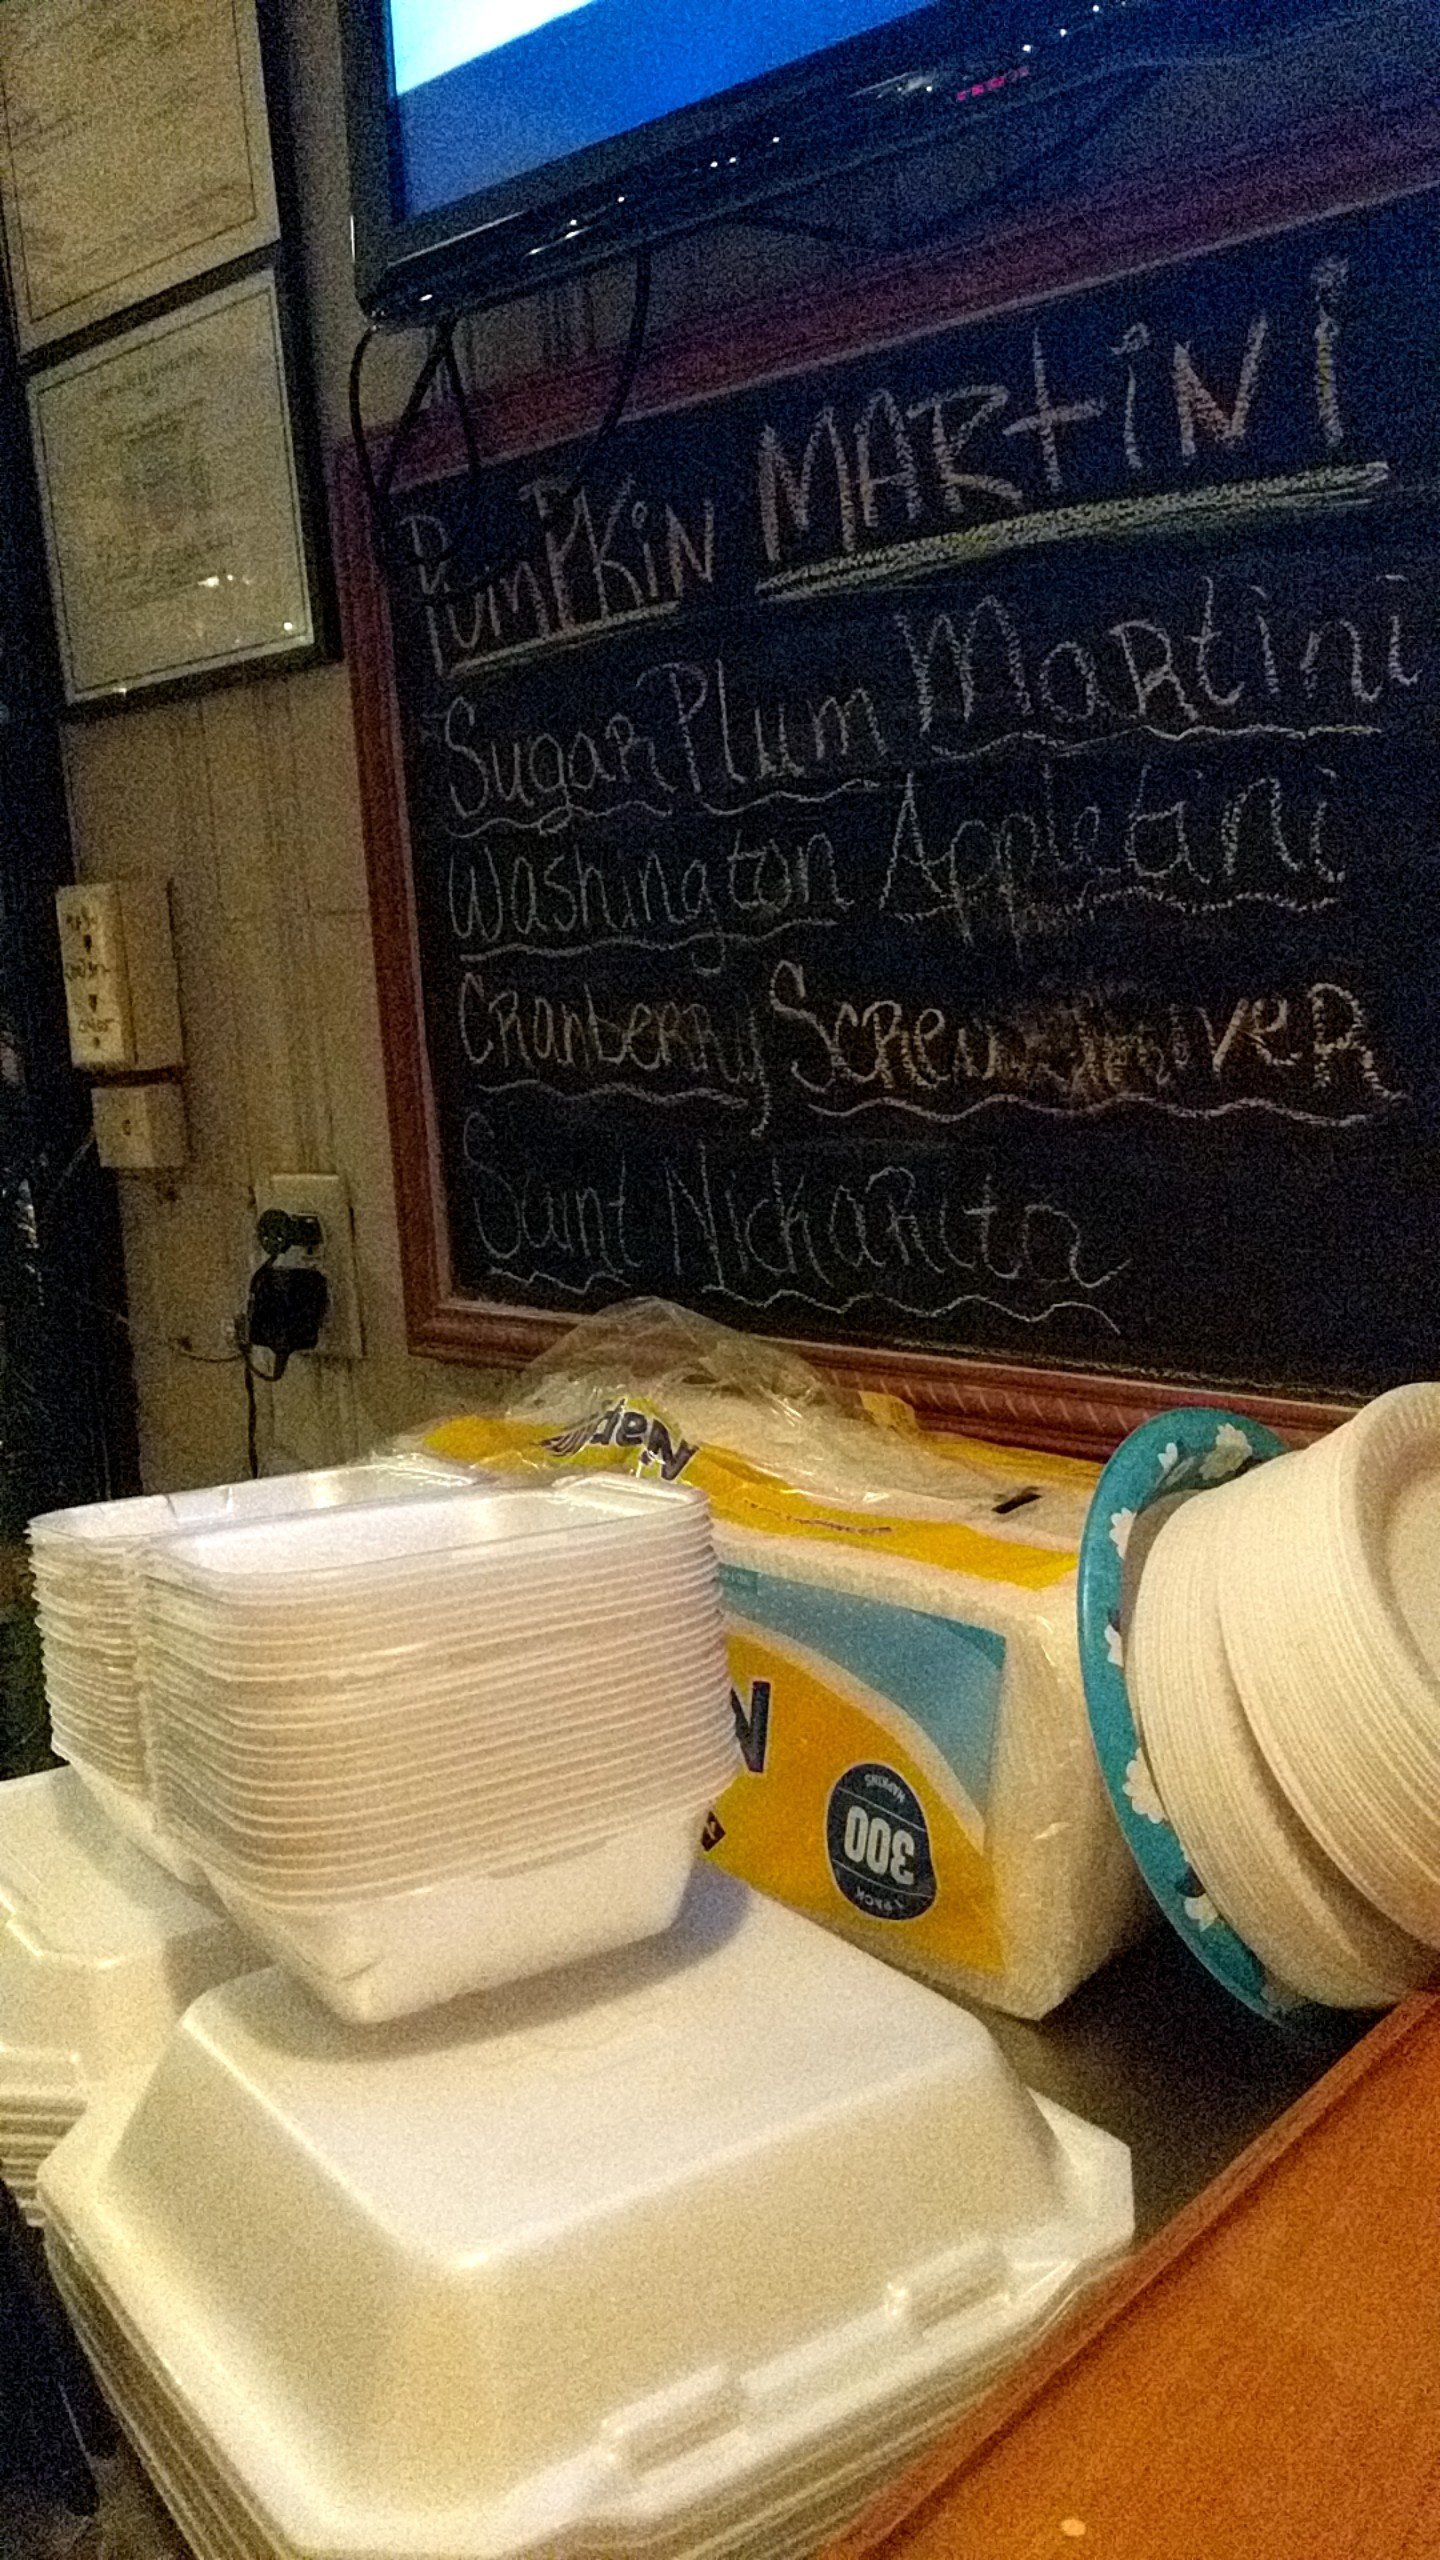 PumPKiN MARtiNi
SugaR Plum MaRtini
Washington Appletini
CRanbeRRy ScRewdRiveR
Saint NickaRita
Nap
N
300
NAPKINS